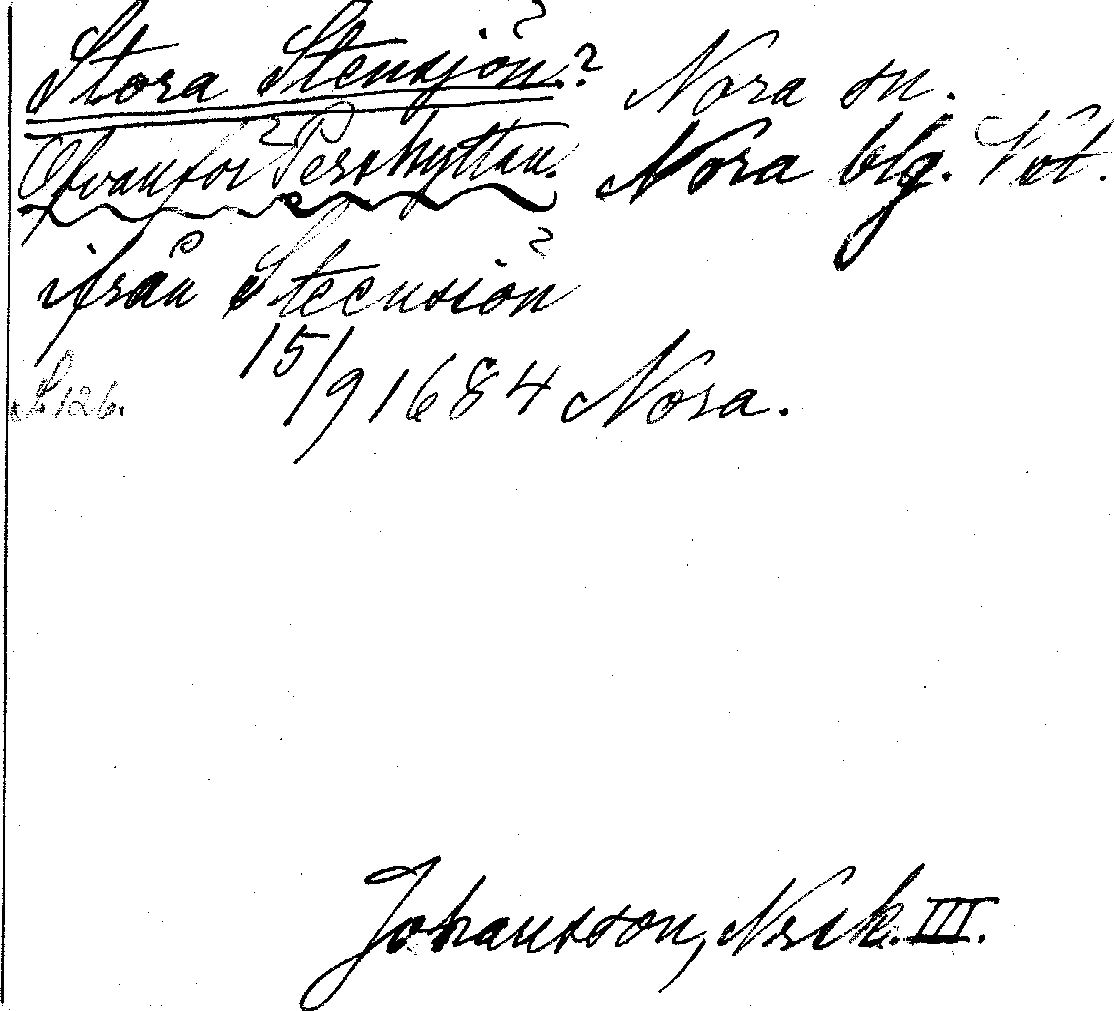 Stora Stensjön.? Nora sn.
Ofvanför Pershyttan. Nora blg. Vst.
ifrån Steensiön
15/9 1684 Nora.
S. 126.
Johansson, Norsk. III.